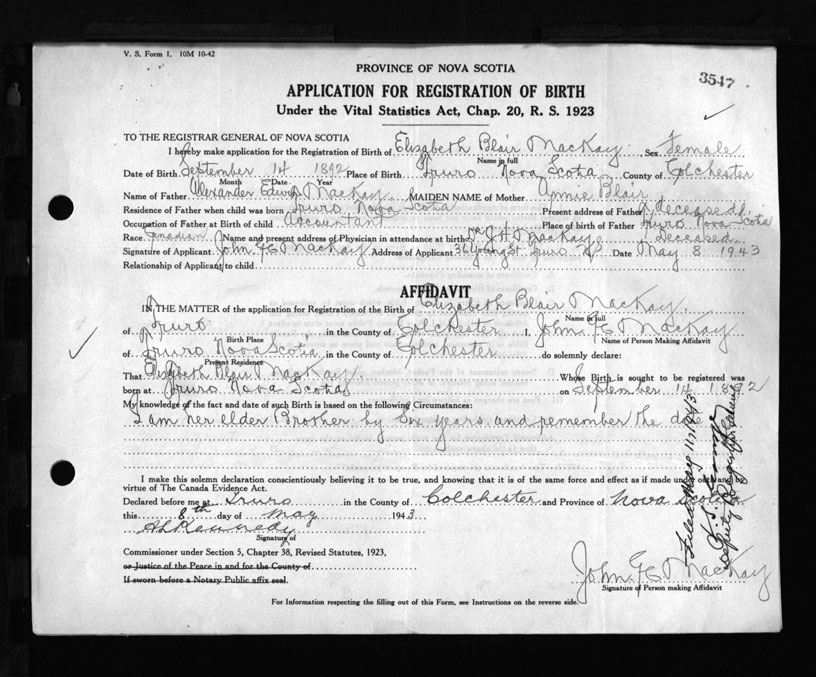 V. S. Form 1. 10M 10-42
3547
PROVINCE OF NOVA SCOTIA
APPLICATION FOR REGISTRATION OF BIRTH
Under the Vital Statistics Act, Chap. 20, R. S. 1923
TO THE REGISTRAR GENERAL OF NOVA SCOTIA
I hereby make application for the Registration of Birth of Elizabeth Blair MacKay, Sex Female
Name in full
Date of Birth September 14 1892 Place of Birth Truro Nova Scotia County of Colchester
Month Date Year
Name of Father Alexander Edwin MacKay MAIDEN NAME of Mother Annie Blair
Residence of Father when child was born Truro Nova Scotia Present address of Father deceased
Occupation of Father at Birth of child Accountant Place of birth of Father Truro Nova Scotia
Race Canadian Name and present address of Physician in attendance at birth Dr. J H MacKay Deceased
Signature of Applicant John MacKay Address of Applicant 36 Young St. Truro NS Date May 8 1943
Relationship of Applicant to child
AFFIDAVIT
IN THE MATTER of the application for Registration of the Birth of Elizabeth Blair MacKay
Name in full
of Truro in the County of Colchester I, John MacKay
Birth Place Name of Person Making Affidavit
of Truro Nova Scotia in the County of Colchester do solemnly declare:
Present Residence
That Elizabeth Blair MacKay Whose Birth is sought to be registered was
born at Truro Nova Scotia on September 14 1892
My knowledge of the fact and date of such Birth is based on the following Circumstances:
I am her elder Brother by Six years and remember the date
I make this solemn declaration conscientiously believing it to be true, and knowing that it is of the same force and effect as if made under oath and by
virtue of The Canada Evidence Act.
Declared before me at Truro in the County of Colchester and Province of Nova Scotia
this 8th day of May 1943
Kennedy
Signature of
Commissioner under Section 5, Chapter 38, Revised Statutes, 1923,
or Justice of the Peace in and for the County of
If sworn before a Notary Public affix seal.
John MacKay
Signature of Person making Affidavit
For Information respecting the filling out of this Form, see Instructions on the reverse side.
Filed May 11, 1943
Deputy Registrar General